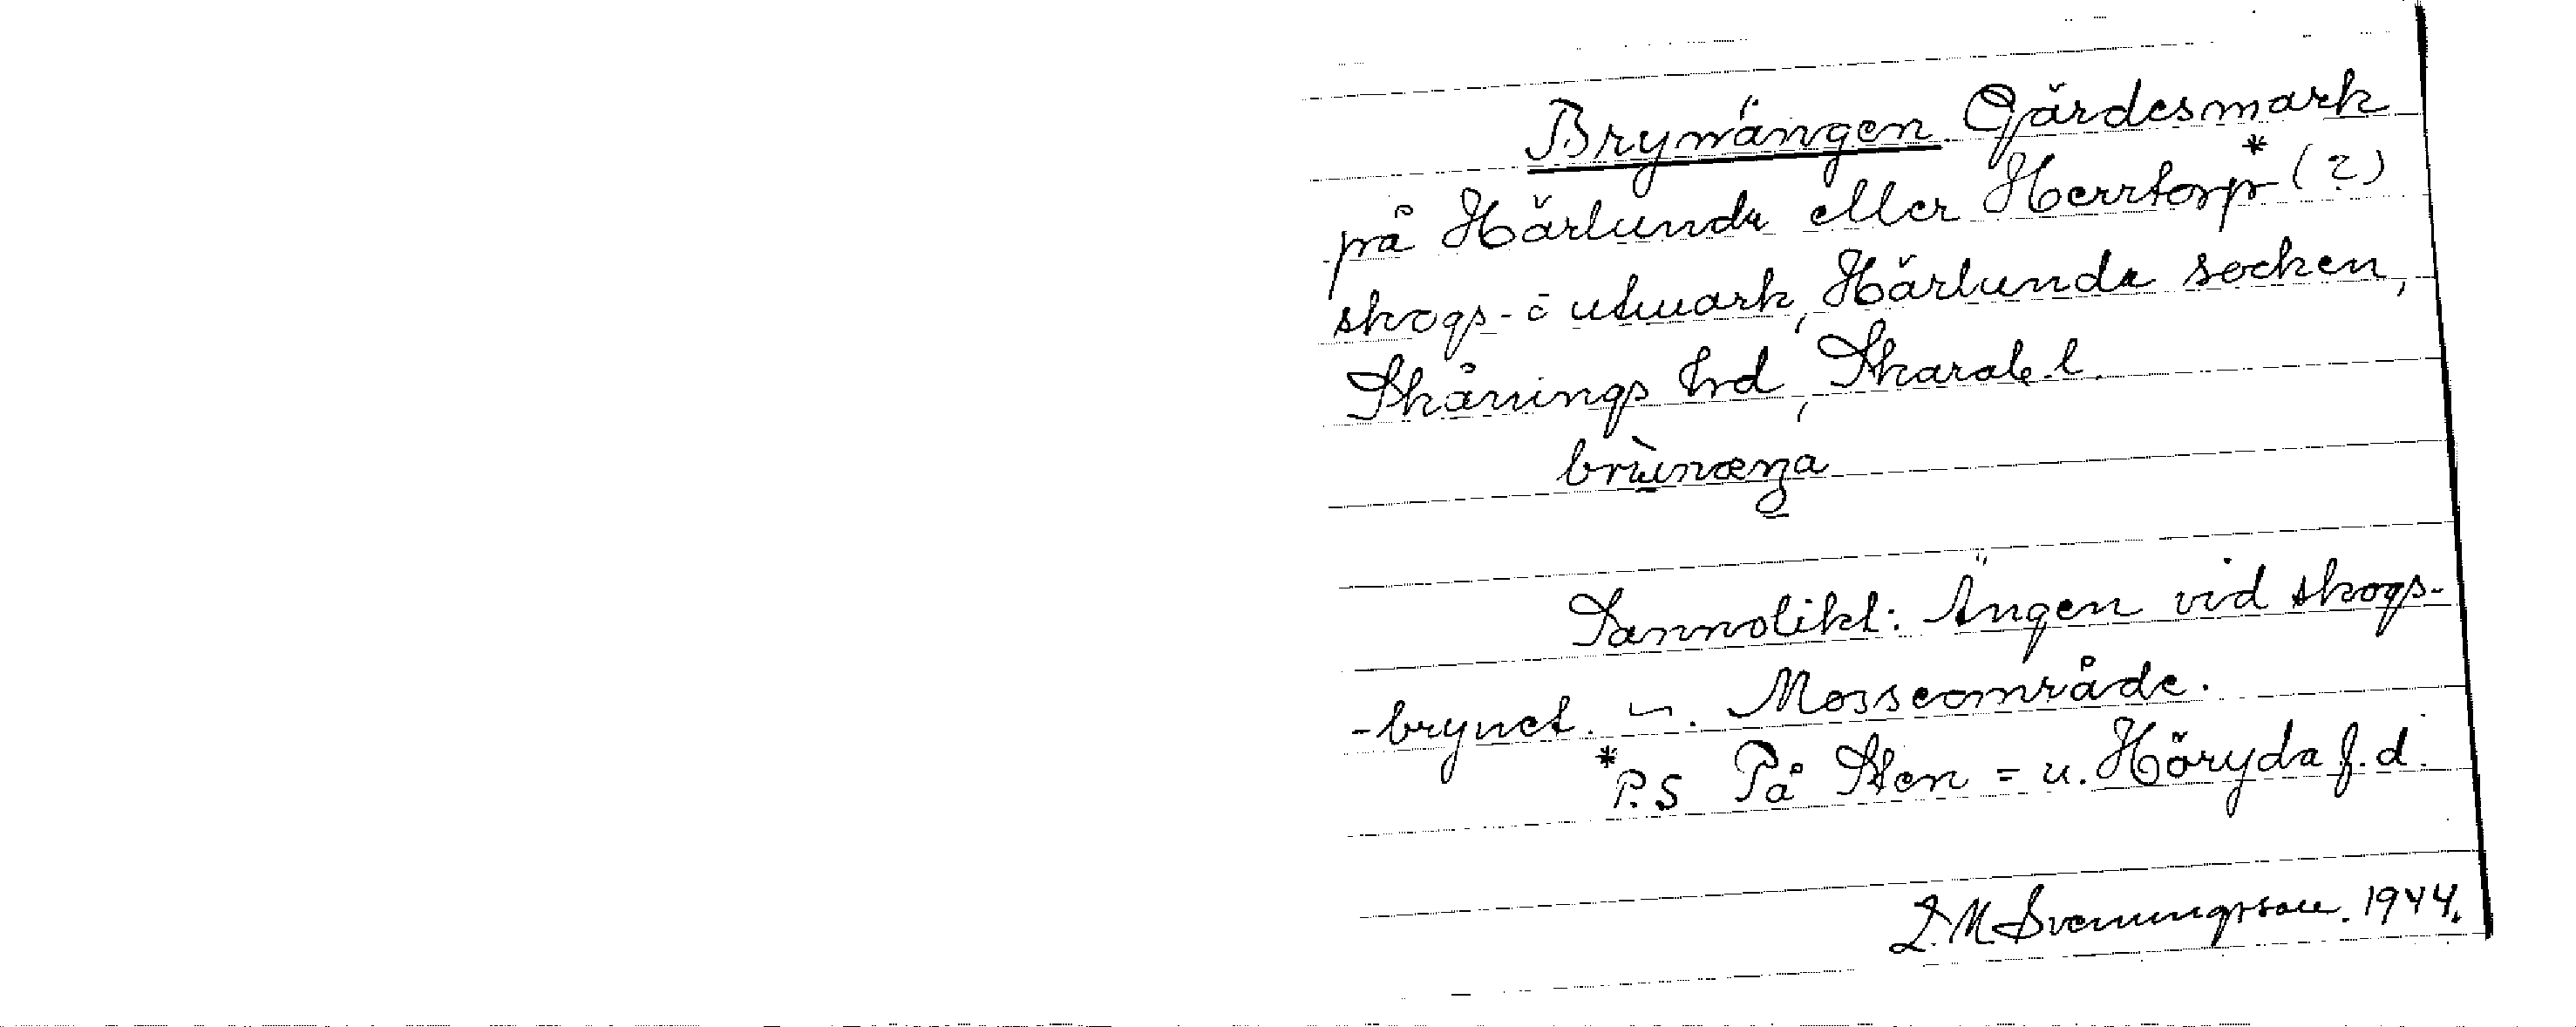 Brynängen. Gärdesmark
på Härlunda eller Herrtorp* (?)
skogs- o utmark, Härlunda socken,
Skånings hrd, Skarab. l.
brùnænga
Sannolikt: Ängen vid skogs-
-brynet. Mosseområde.
*P.S På Sten = u. Höryda f.d.
L.M. Svenungsson. 1944.